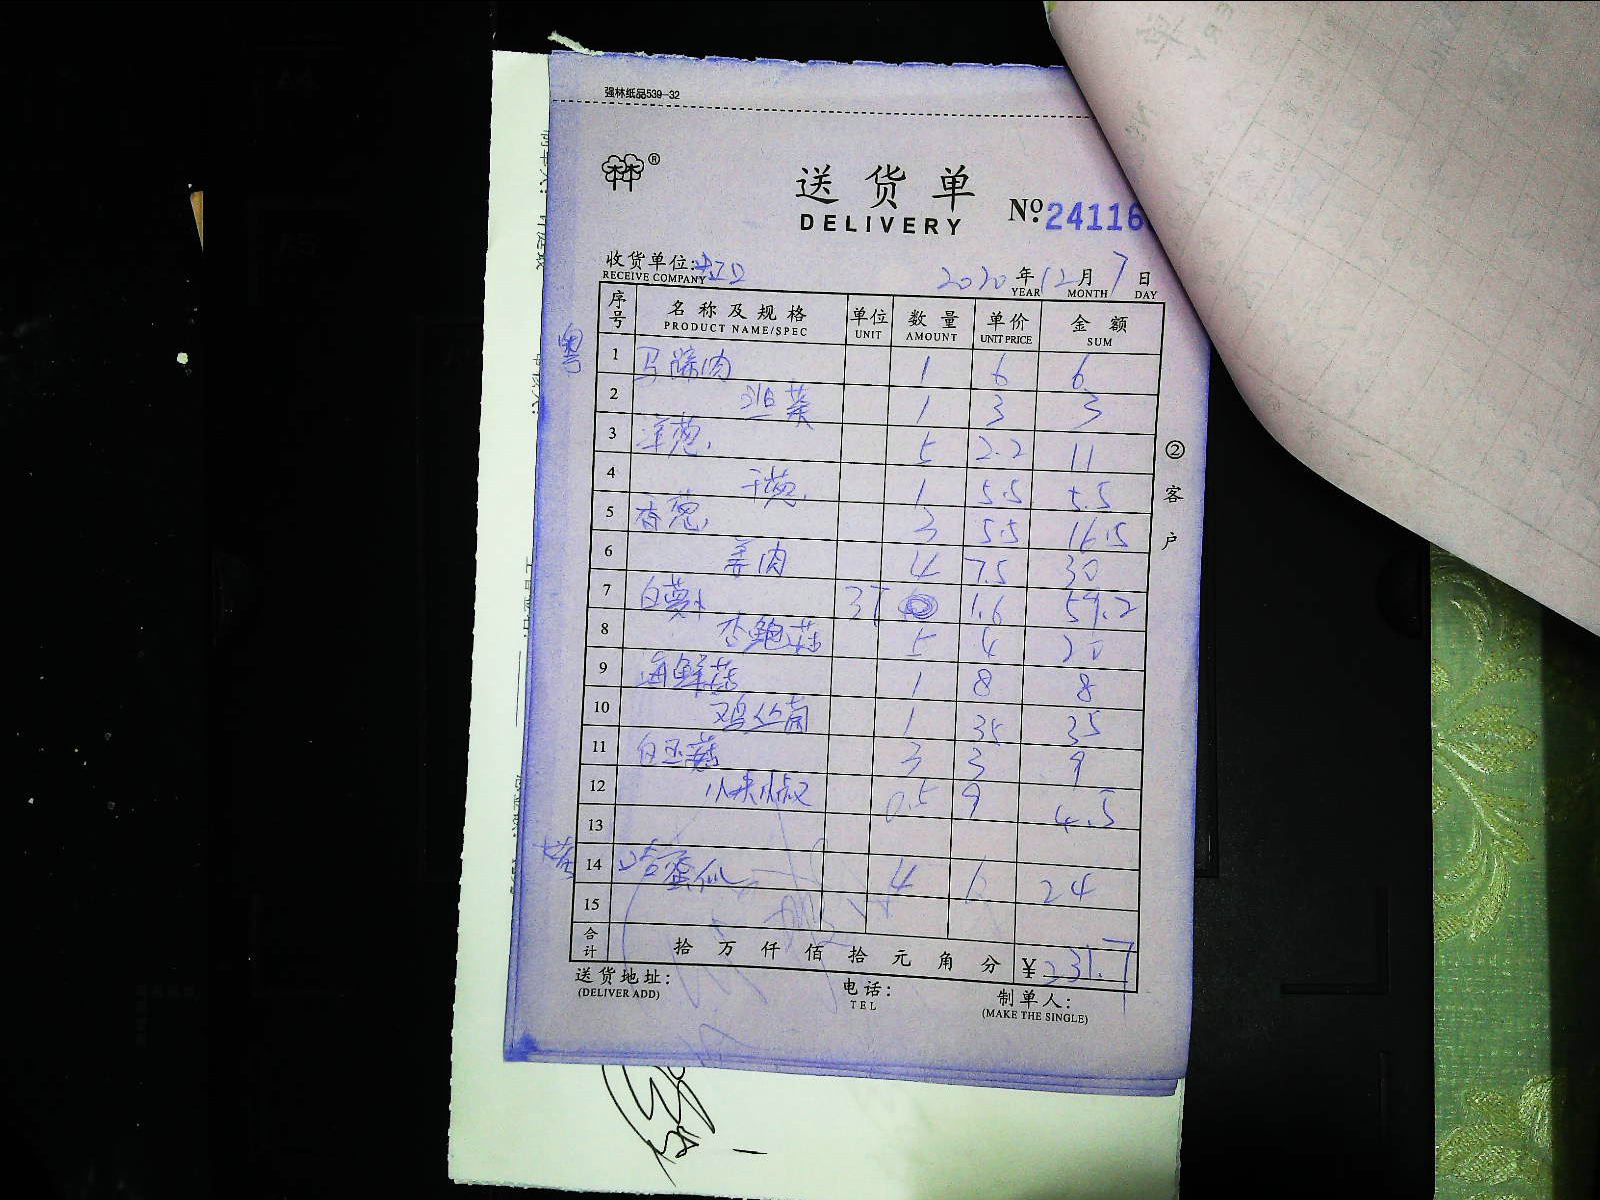 强林纸品539-32
®
送货单
DELIVERY
No. 24116
收货单位:
RECEIVE COMPANY
2020年12月7日
YEAR MONTH DAY
序号 名称及规格 单位 数量 单价 金额
PRODUCT NAME/SPEC UNIT AMOUNT UNIT PRICE SUM
粤
1 马蹄肉 1 6 6
2 1 3 3
3 洋葱 5 2.2 11
4 干葱 1 5.5 5.5
5 香葱 3 5.5 16.5
6 姜肉 4 7.5 30
7 白萝卜 37 1.6 59.2
8 杏鲍菇 5 4 20
9 海鲜菇 1 8 8
10 鸡丝菌 1 35 35
11 白玉菇 3 3 9
12 小米椒 0.5 9 4.5
13
14 4 6 24
15
合计 拾万仟佰拾元角分 ¥231.7
送货地址:
(DELIVER ADD)
电话:
TEL
制单人:
(MAKE THE SINGLE)
②客户